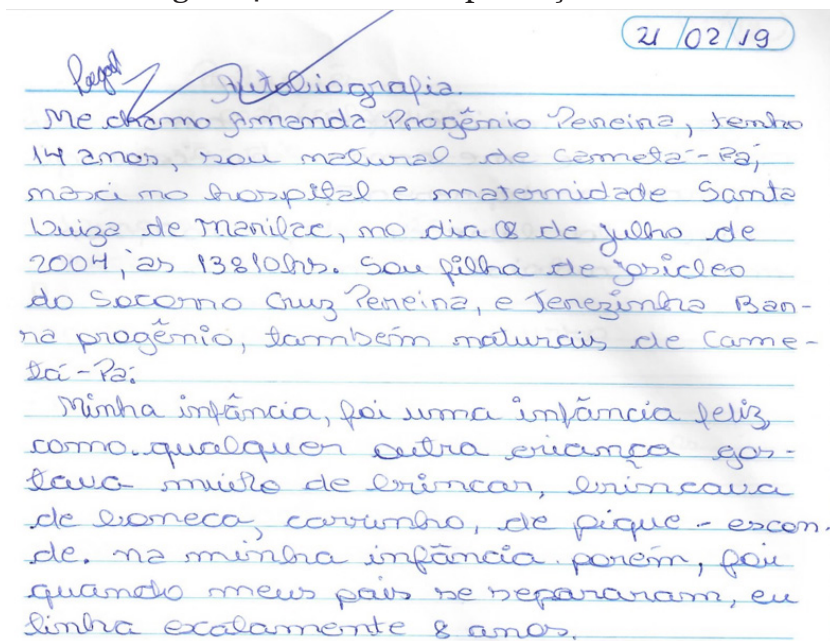 21/02/19
Legal
Autobiografia.
Me chamo Amanda Progênio Pereira, tenho
14 anos, sou natural de Cametá-Pa,
nasci no hospital e maternidade Santa
Luiza de Marilac, no dia 08 de julho de
2004, às 13:10hs. Sou filha de
do Socorro Cruz Pereira, e Terezinha Bar-
ra progênio, também naturais de Came-
tá-Pa.
Minha infância, foi uma infância feliz,
como qualquer outra criança gos-
tava muito de brincar, brincava
de boneca, carrinho, de pique-escon-
de. na minha infância porém, foi
quando meus pais se separaram, eu
tinha exatamente 8 anos.